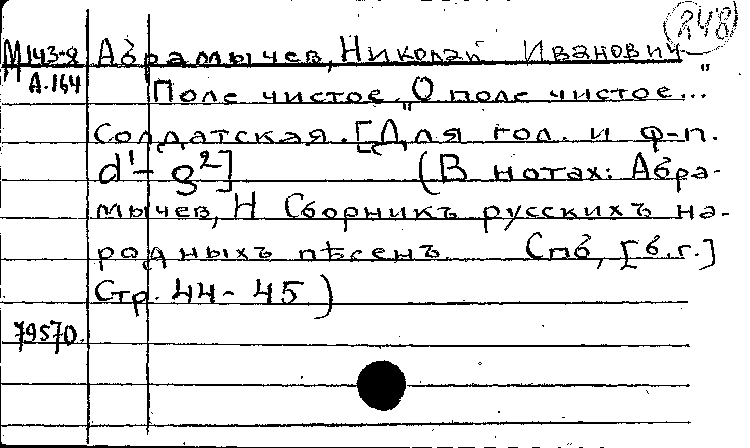 248
М143-8 Абрамычев, Николай Иванович
А.164 Поле чистое „О поле чистое..."
Солдатская. [Для гол. и ф-п.
d¹ – g²] (В нотах: Абра-
мычев, Н Сборникъ русскихъ на-
родныхъ пѣсенъ Спб, [б.г.]
Стр. 44-45)
79570.